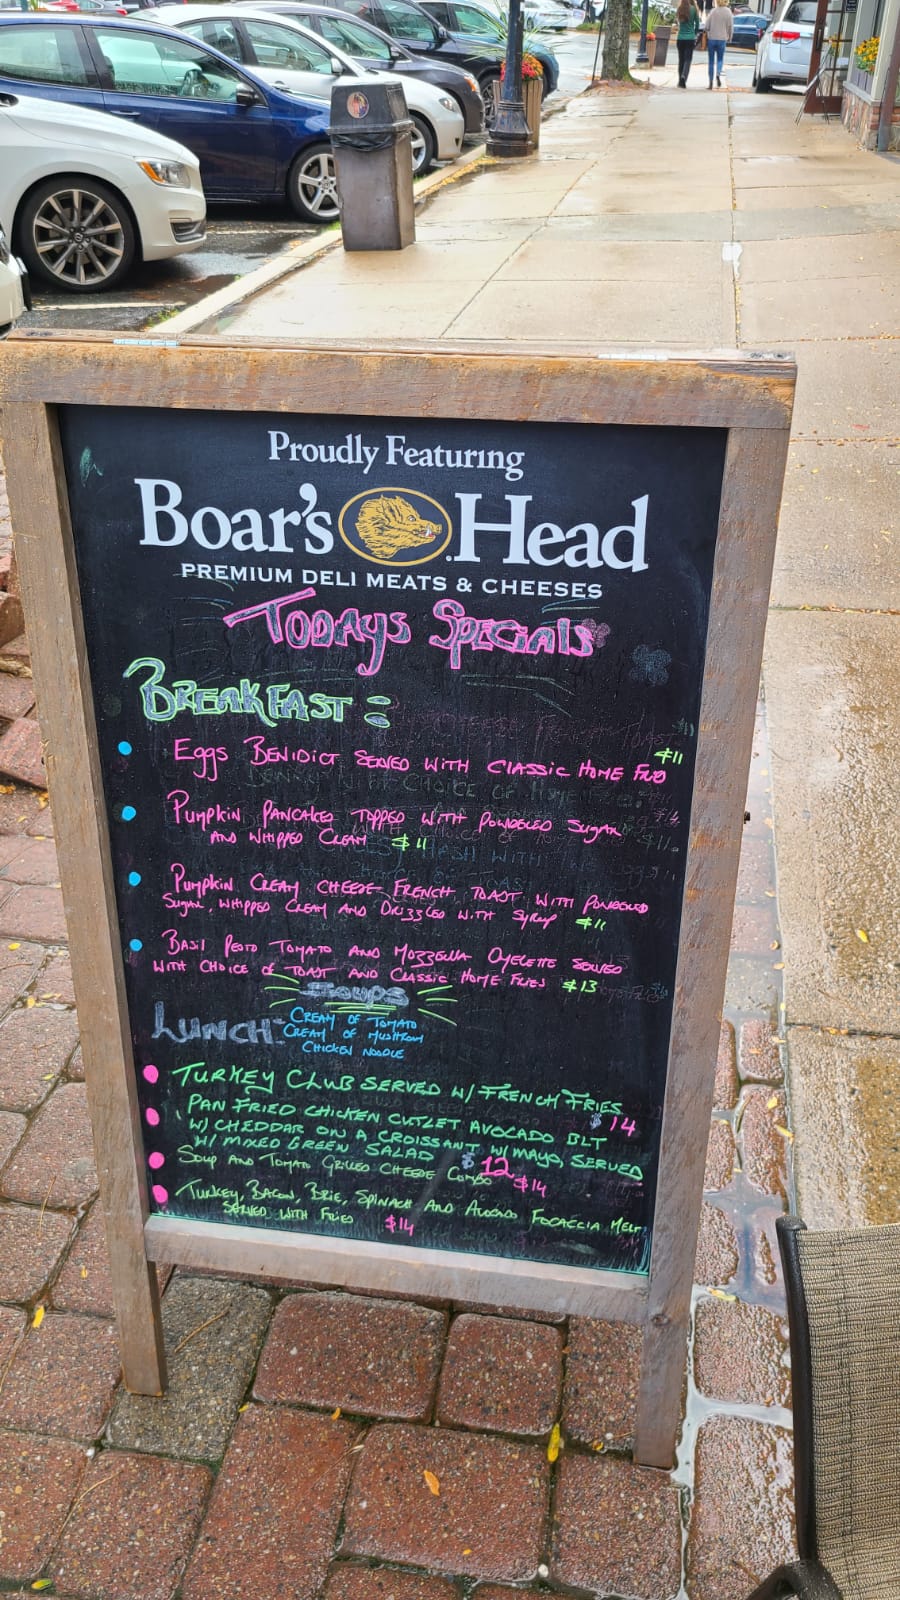 Proudly Featuring
Boar's Head
PREMIUM DELI MEATS & CHEESES
TODAYS SPECIALS
BREAKFAST:
EGGS BENIDICT SERVED WITH CLASSIC HOME FRIES $11
PUMPKIN PANCAKES TOPPED WITH POWDERED SUGAR
AND WHIPPED CREAM $11
PUMPKIN CREAM CHEESE FRENCH TOAST WITH POWDERED
SUGAR, WHIPPED CREAM AND DRIZZLED WITH SYRUP $11
BASIL PESTO TOMATO AND MOZZERELLA OMELETTE SERVED
WITH CHOICE OF TOAST AND CLASSIC HOME FRIES $13
SOUPS
LUNCH:
CREAM OF TOMATO
CREAM OF MUSHROOM
CHICKEN NOODLE
TURKEY CLUB SERVED W/ FRENCH FRIES
$14
PAN FRIED CHICKEN CUTLET AVOCADO BLT
W/ CHEDDAR ON A CROISSANT W/ MAYO, SERVED
W/ MIXED GREEN SALAD $12
SOUP AND TOMATO GRILLED CHEESE COMBO $14
TURKEY, BACON, BRIE, SPINACH AND AVOCADO FOCACCIA MELT
SERVED WITH FRIES $14